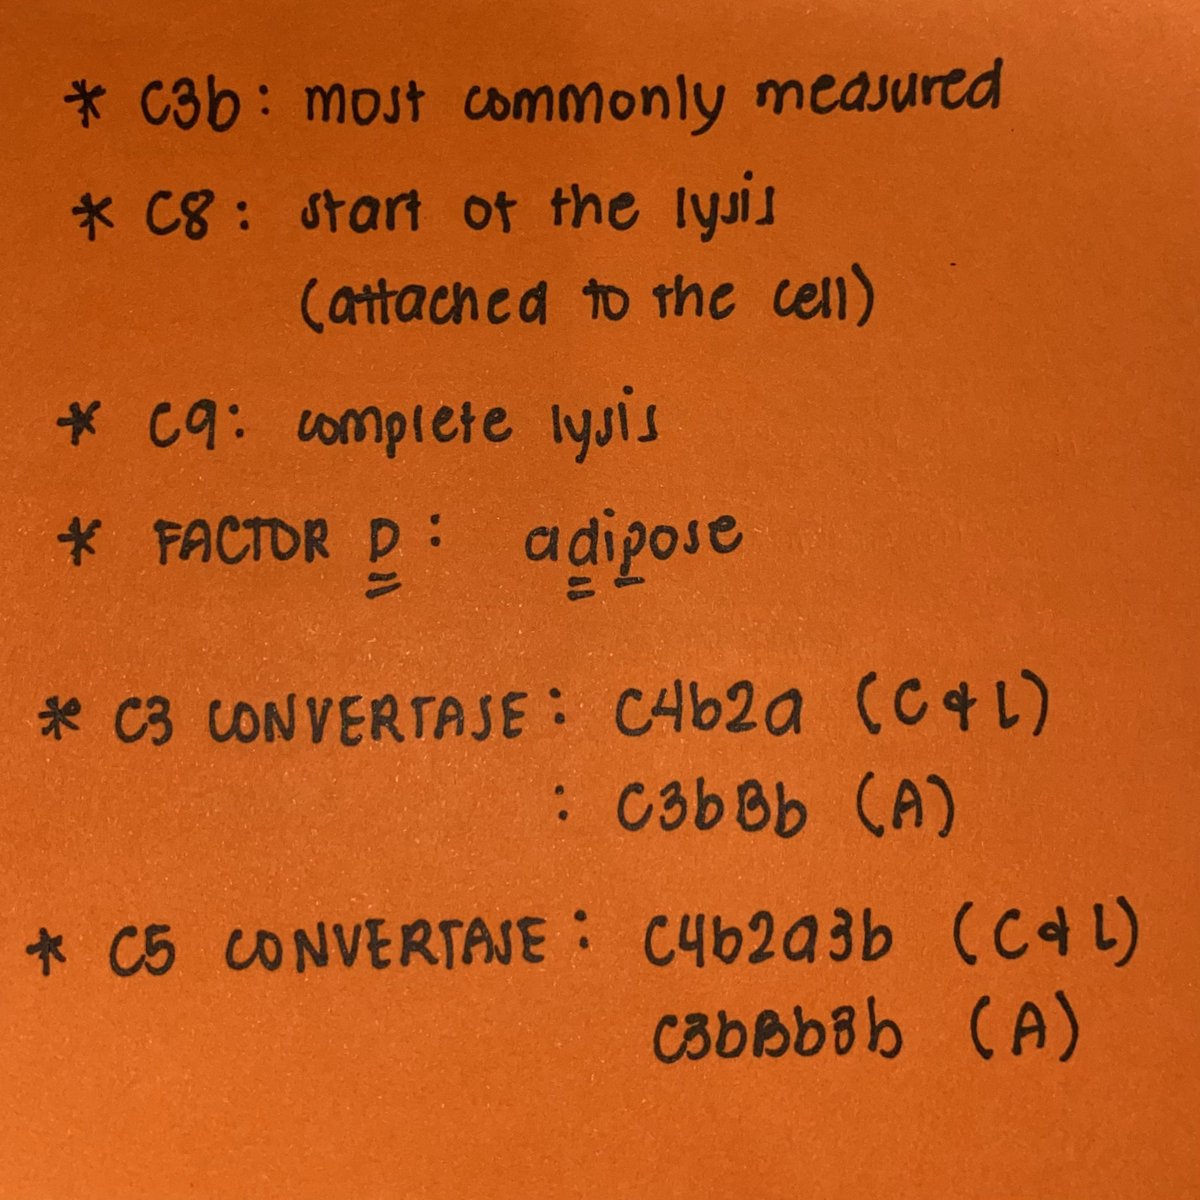 * C3b: most commonly measured
* C8: start of the lysis
(attached to the cell)
* C9: complete lysis
* FACTOR D: adipose
* C3 CONVERTASE: C4b2a (C & L)
: C3bBb (A)
* C5 CONVERTASE: C4b2a3b (C & L)
C3bBb3b (A)